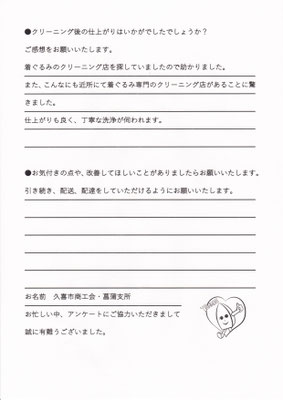 ●クリーニング後の仕上がりはいかがでしたでしょうか？
ご感想をお願いいたします。
着ぐるみのクリーニング店を探していましたので助かりました。
また、こんなにも近所にて着ぐるみ専門のクリーニング店があることに驚
きました。
仕上がりも良く、丁寧な洗浄が伺われます。
●お気付きの点や、改善してほしいことがありましたらお願いいたします。
引き続き、配送、配達をしていただけるようにお願いいたします。
お名前　久喜市商工会・菖蒲支所
お忙しい中、アンケートにご協力いただきまして
誠に有難うございました。